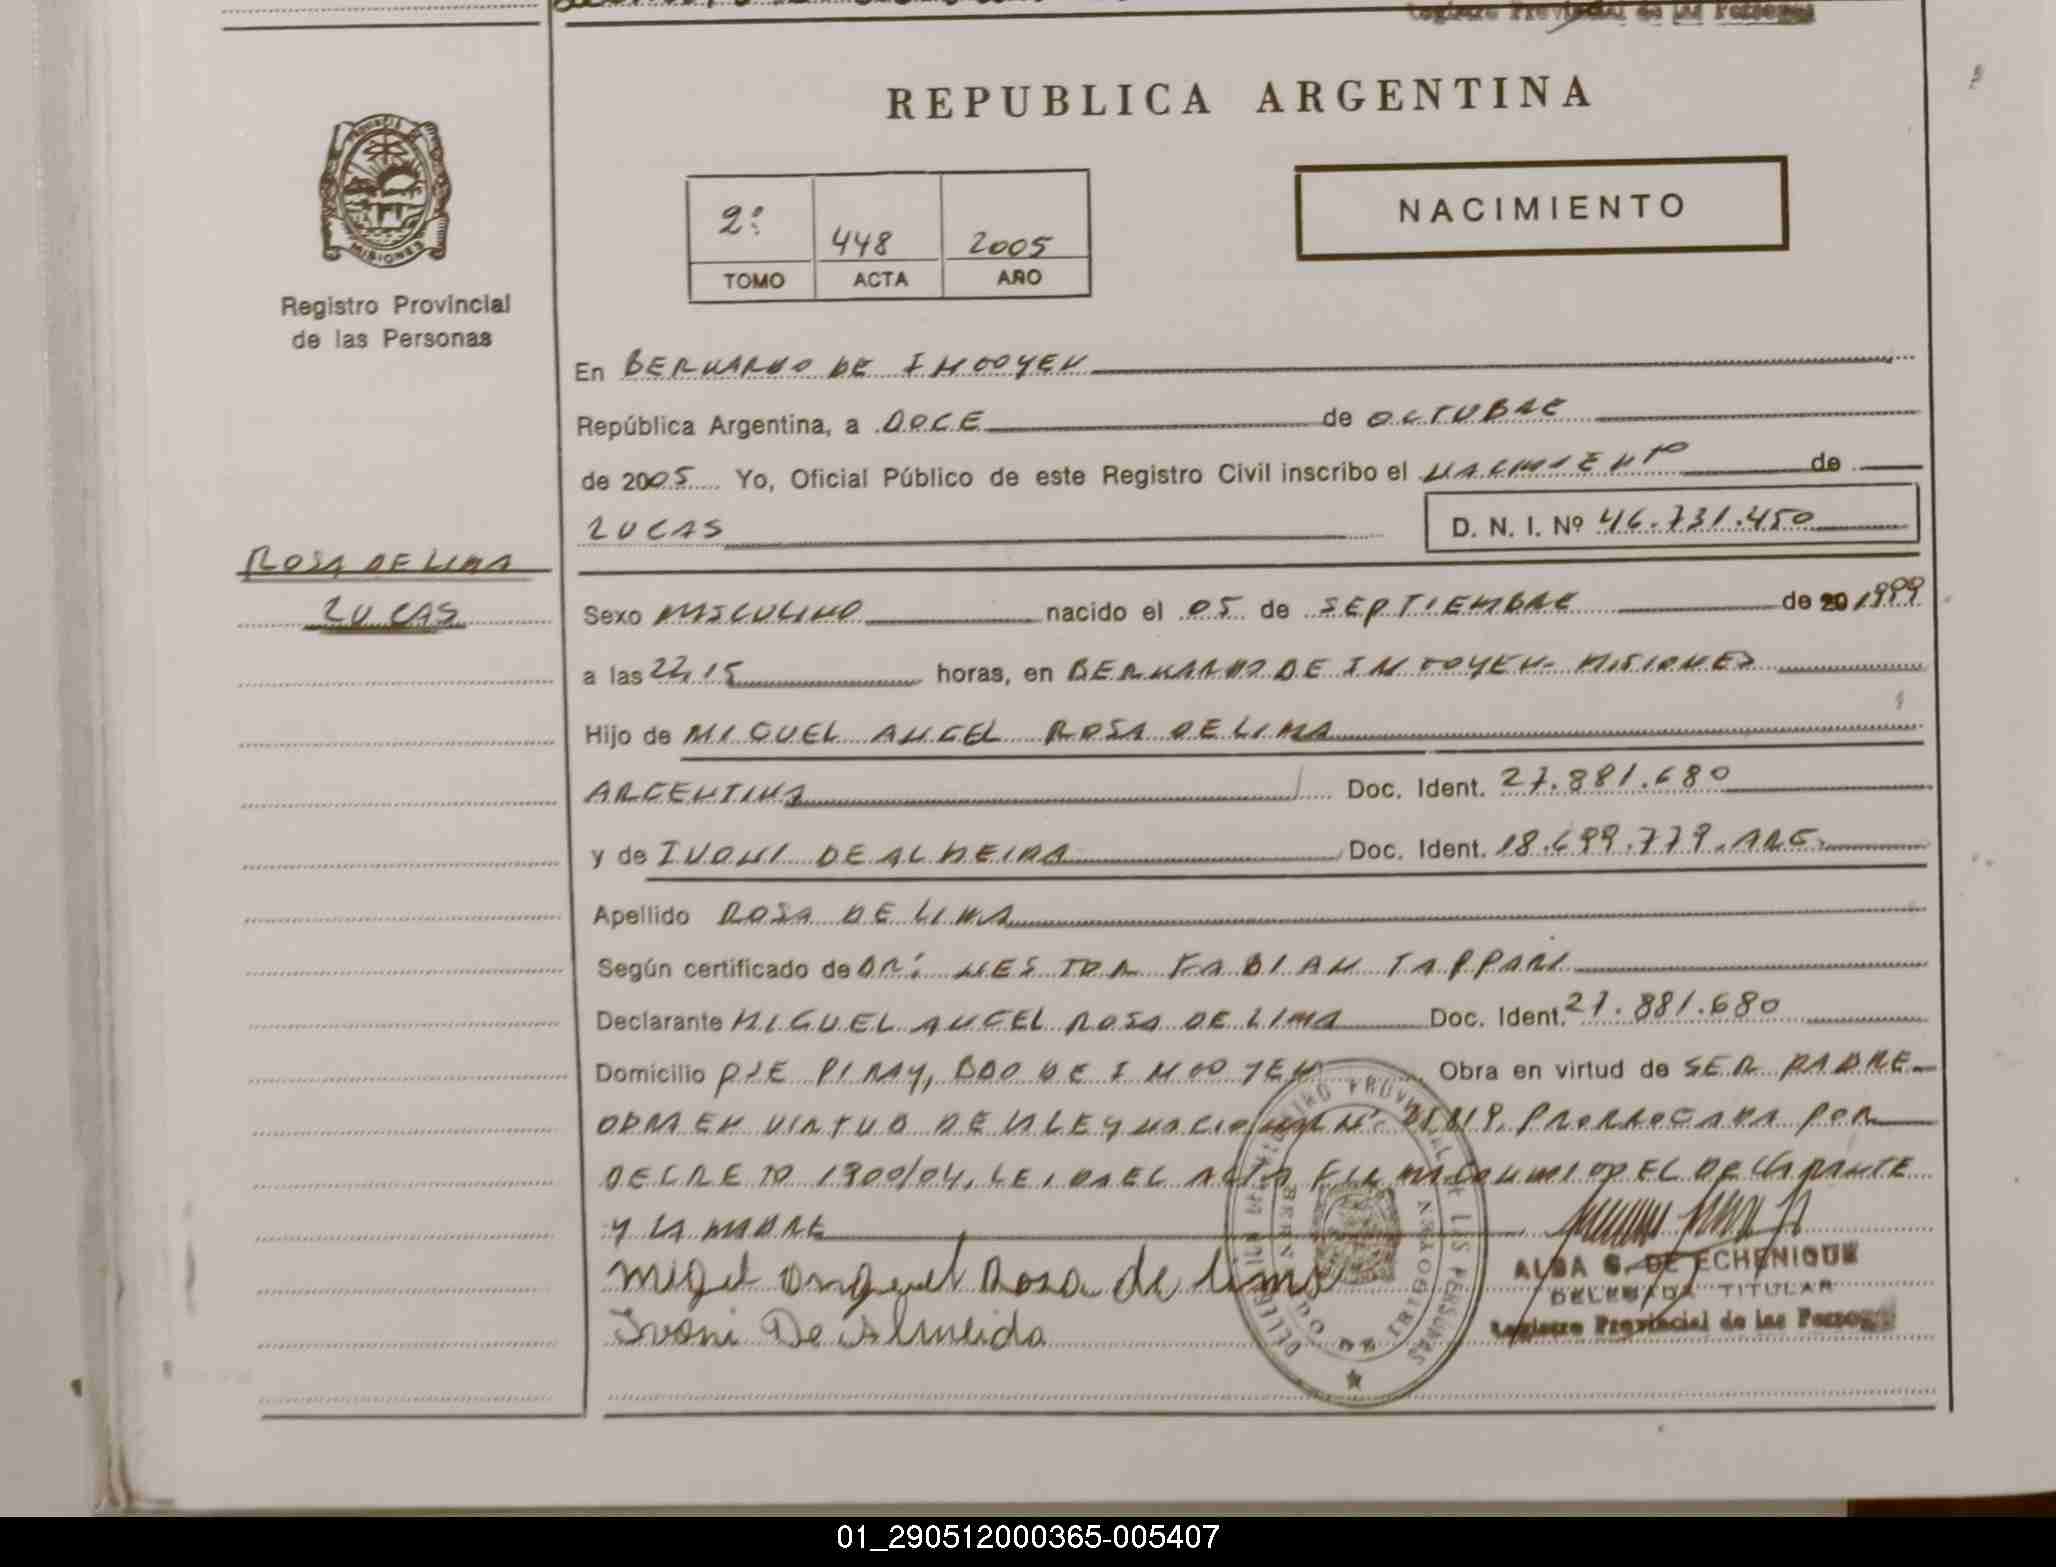 Registro Provincial de las Personas
REPUBLICA ARGENTINA
PROVINCIA DE
MISIONES
Registro Provincial
de las Personas
2º 448 2005
TOMO ACTA AÑO
NACIMIENTO
En BERNARDO DE IRIGOYEN
República Argentina, a DOCE de OCTUBRE
de 2005 Yo, Oficial Público de este Registro Civil inscribo el NACIMIENTO de
LUCAS D. N. I. Nº 46.731.450
ROSA DE LIMA
LUCAS
Sexo MASCULINO nacido el 05 de SEPTIEMBRE de 20 1999
a las 22,15 horas, en BERNARDO DE IRIGOYEN - MISIONES
Hijo de MIGUEL ANGEL ROSA DE LIMA
ARGENTINA Doc. Ident. 27.881.680
y de IVONI DE ALMEIDA Doc. Ident. 18.699.779. ARG.
Apellido ROSA DE LIMA
Según certificado de DR: NESTOR FABIAN TAPPARI
Declarante MIGUEL ANGEL ROSA DE LIMA Doc. Ident. 27.881.680
Domicilio PJE PIRAY, BDO DE IRIGOYEN Obra en virtud de SER PADRE
OBRA EN VIRTUD DE LA LEY NACIONAL Nº PRORROGADA POR
DECRETO 1900/04, LEIDA EL ACTA FIRMA CONMIGO EL DECLARANTE
Y LA MADRE
Migel anguel Rosa de lima
Ivoni De Almeida
ALBA G. DE ECHENIQUE
DELEGADA TITULAR
Registro Provincial de las Personas
01_290512000365-005407